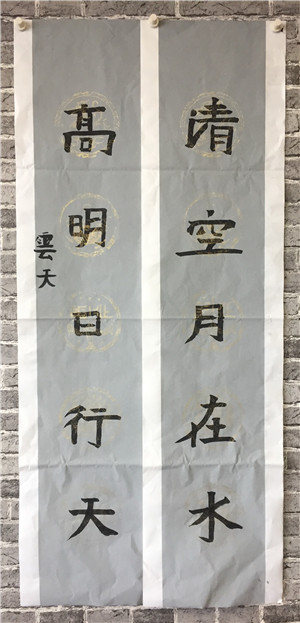 清空月在水
高明日行天
雲天